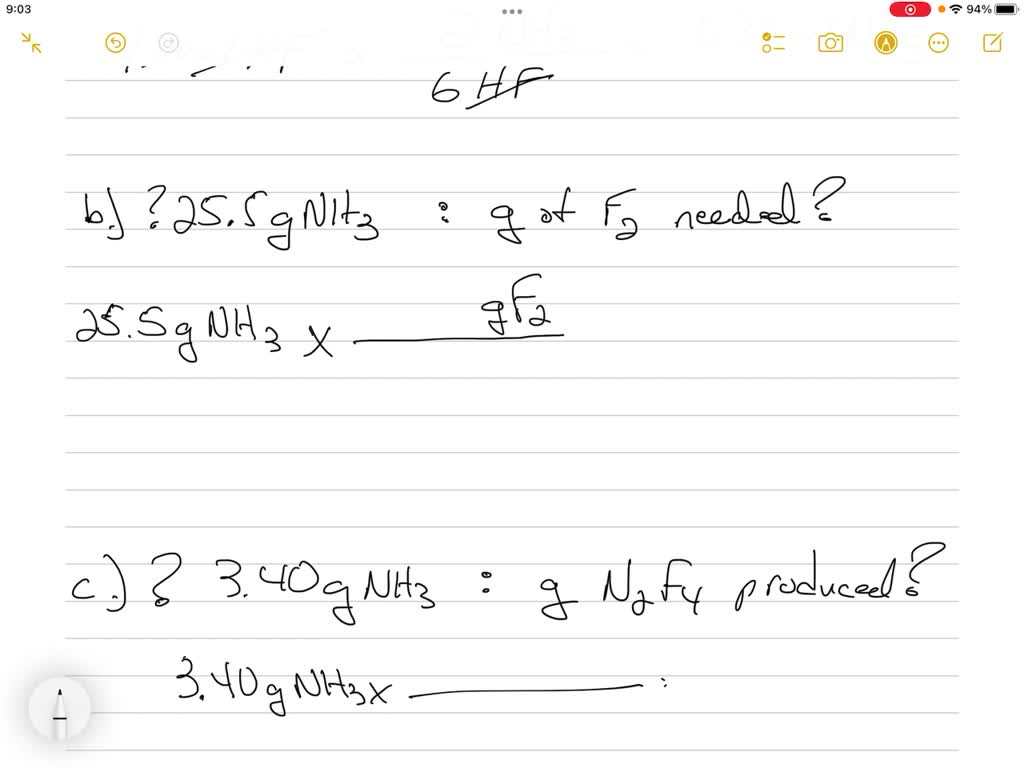 9:03
94%
6 HF
b.) ? 25.5g NH3 : g of F2 needed?
25.5g NH3 x gF2
c.) ? 3.40g NH3 : g N2F4 produced?
3.40g NH3 x